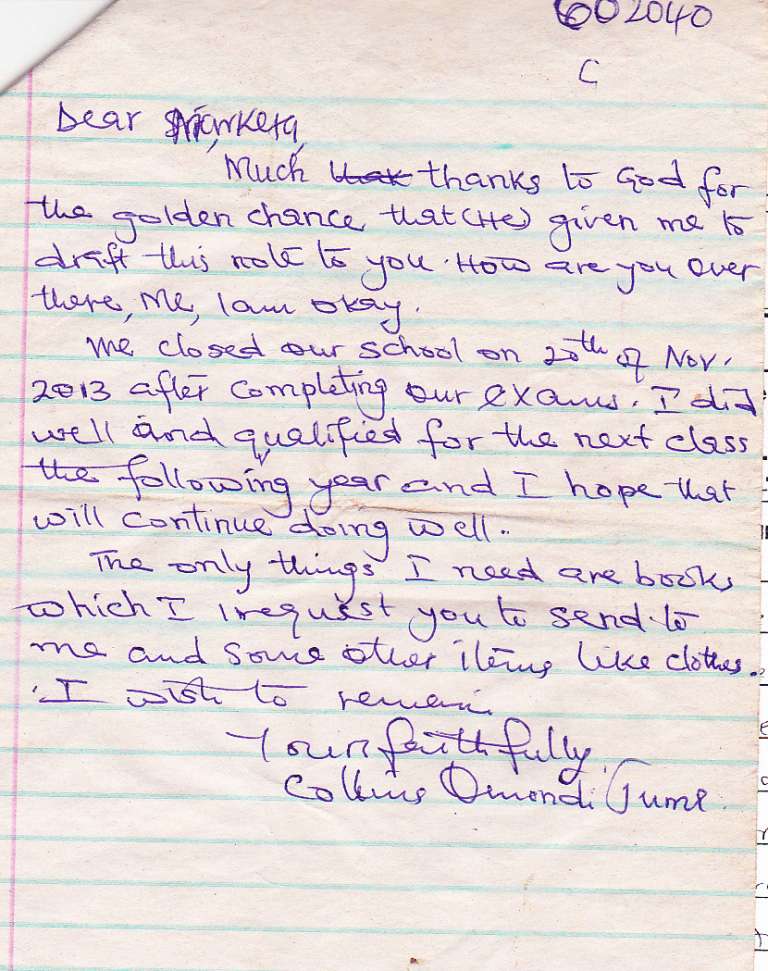 602040
C
Dear Marketa,
Much thanks to God for
the golden chance that (He) given me to
draft this note to you. How are you over
there, Me, I am okay.
We closed our school on 20th of Nov.
2013 after completing our exams. I did
well and qualified for the next class
the following year and I hope that
will continue doing well..
The only things I need are books
which I irequest you to send to
me and some other items like clothes.
I wish to remain
Your faithfully.
Collins Omondi